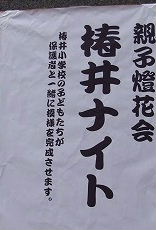 親子燈花会
椿井ナイト
椿井小学校の子どもたちが
保護者と一緒に模様を完成させます。